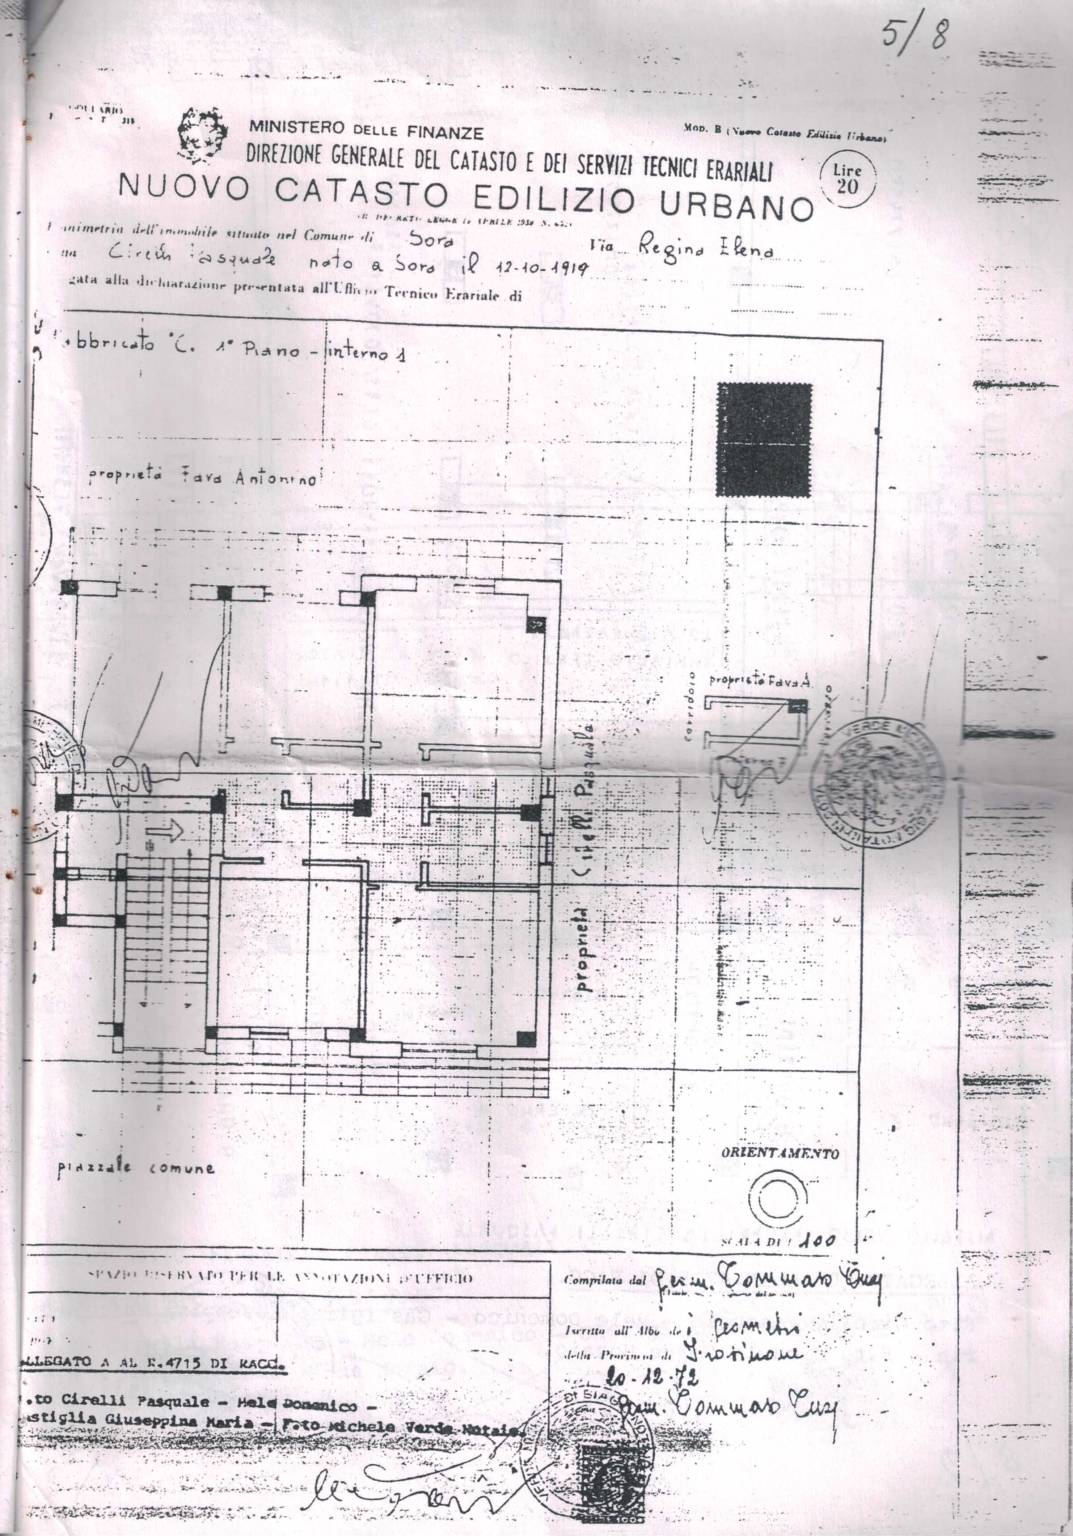 5/8
MINISTERO DELLE FINANZE
MOD. B (Nuovo Catasto Edilizio Urbano)
DIREZIONE GENERALE DEL CATASTO E DEI SERVIZI TECNICI ERARIALI
Lire
20
NUOVO CATASTO EDILIZIO URBANO
animetria dell'immobile situato nel Comune di Sora Via Regina Elena
Pasquale nato a Sora il 12-10-1919
gata alla dichiarazione presentata all'Ufficio Tecnico Erariale di
abbricato "C. 1° Piano - interno 1
proprietà Fava Antonino
corridoio
proprietà Fava A.
proprietà Cirelli Pasquale
piazzale comune
ORIENTAMENTO
SCALA DI 1: 100
SPAZIO RISERVATO PER LE ANNOTAZIONI D'UFFICIO
Compilata dal geom. Tommaso
Iscritto all'Albo dei geometri
della Provincia di Frosinone
LLEGATO A AL R.4715 DI RACC.
20-12-72
.to Cirelli Pasquale - Mele Domenico -
geom. Tommaso
astiglia Giuseppina Maria - F.to Michele Verde Notaio.